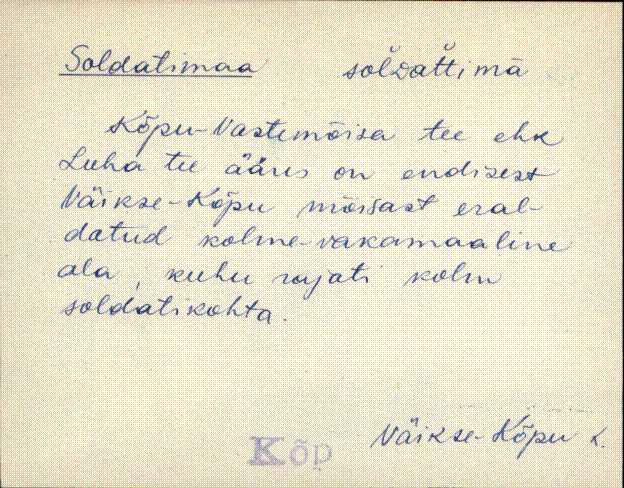 Soldatimaa soldattimā
Kõpu-Vastemõisa tee ehk
Luha tee ääres on endisest
Väikse-Kõpu mõisast eral-
datud kolme-vakamaaline
ala, kuhu rajati kolm
soldatikohta.
Väikse-Kõpu k.
Kõp